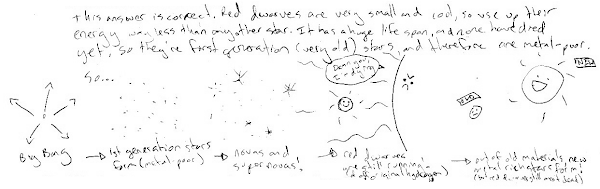 this answer is correct. Red dwarves are very small and cool, so use up their
energy way less than any other star. It has a huge life span, and none have died
yet, so they're first generation (very old) stars, and therefore are metal-poor.
So...
I'm dying
OLD
NEW
Big Bang → 1st generation stars form (metal-poor) → novas and supernovas! → red dwarves are still running out of original hydrogen → out of old materials new metal rich stars form!